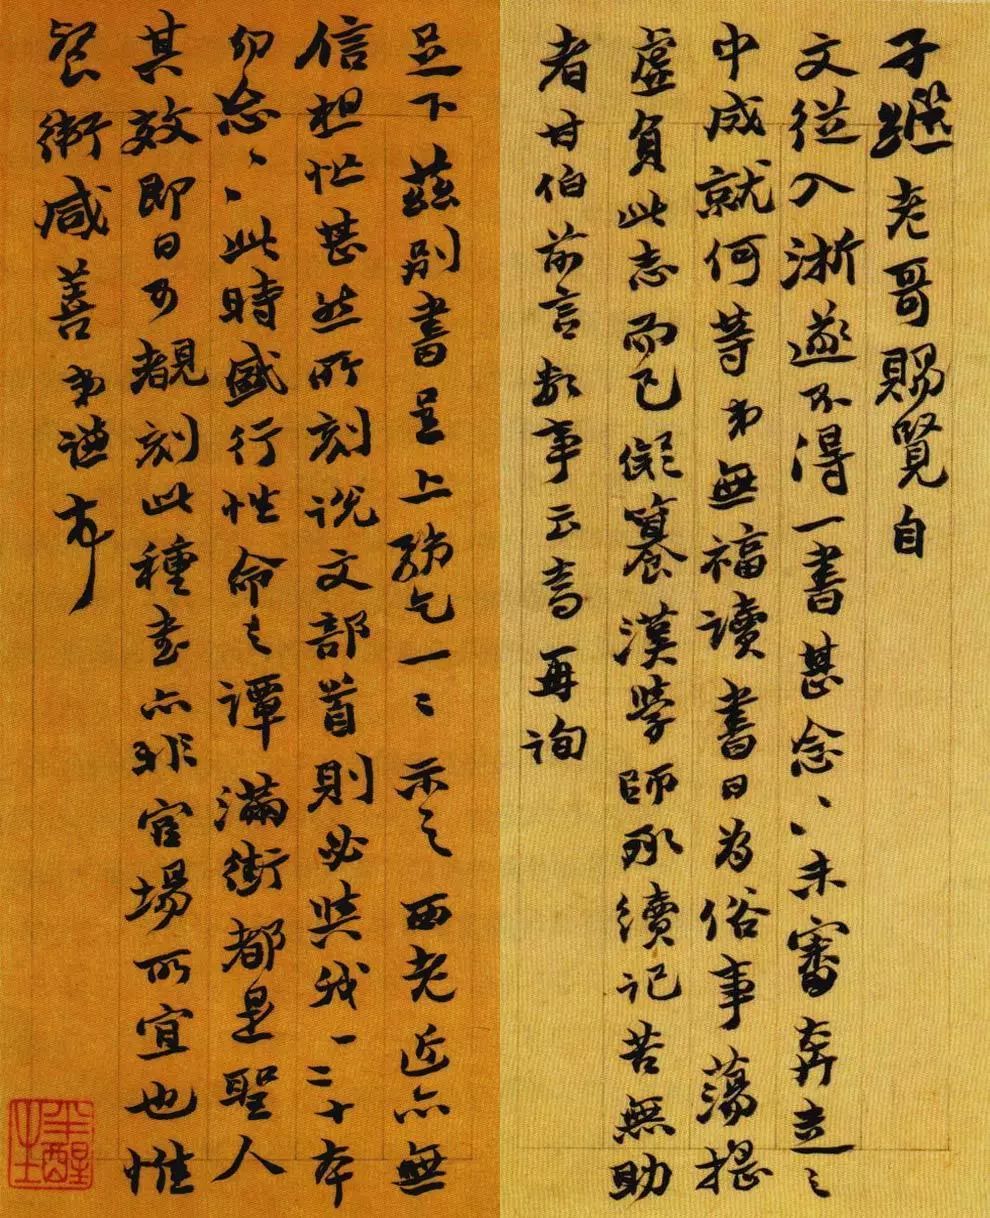 子繼老哥賜覽自
文從入淅遂不得一書甚念、、未審奔走之
中成就何等弟無福讀書日為俗事蕩搖
虛負此志而已儗纂漢學師承續記苦無助
者甘伯前言數事云嵩再詢
足下茲別書呈上務乞一二示之西老近亦無
信想忙甚然所刻說文部首則必與我一二十本
勿忘、、此時盛行性命之譚滿街都是聖人
其效即日可覩刻此種書亦非官場所宜也惟
餐衛咸善弟謙頓